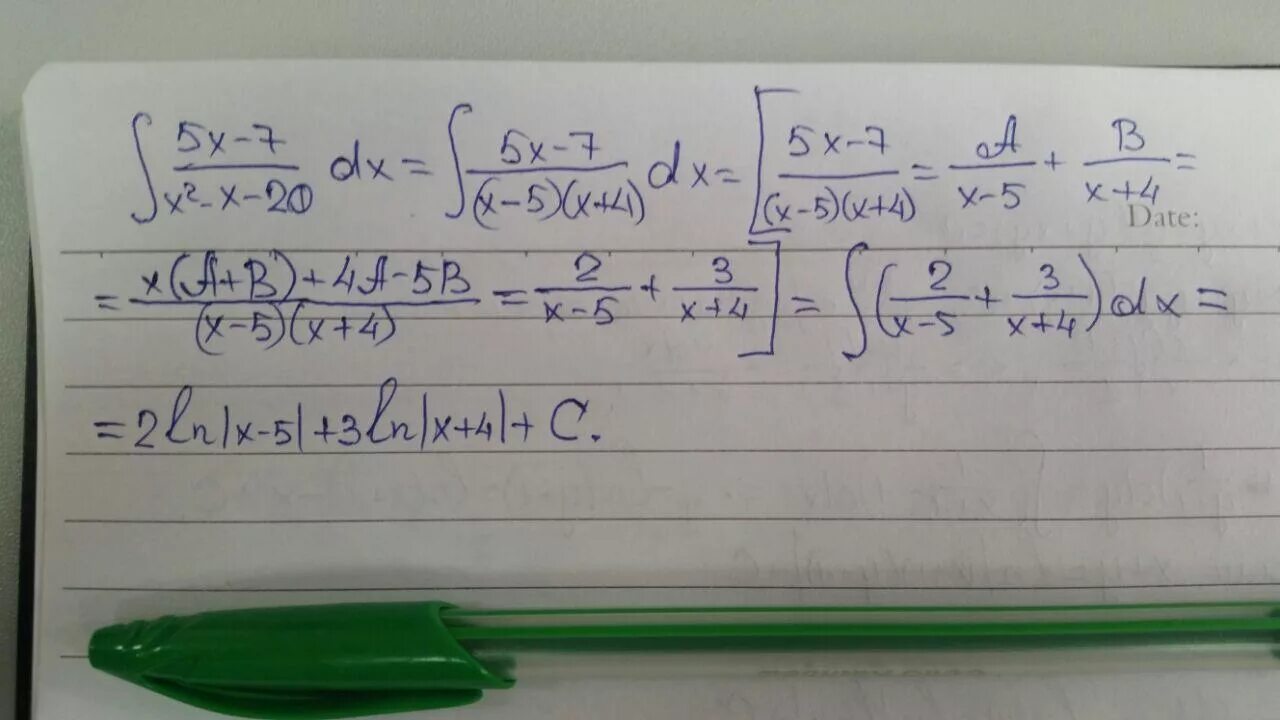 ∫ (5x-7)/(x²-x-20) dx = ∫ (5x-7)/((x-5)(x+4)) dx = [ (5x-7)/((x-5)(x+4)) = A/(x-5) + B/(x+4) =
Date:
= (x(A+B)+4A-5B)/((x-5)(x+4)) = 2/(x-5) + 3/(x+4) ] = ∫ (2/(x-5) + 3/(x+4)) dx =
= 2 ln|x-5| + 3 ln|x+4| + C.